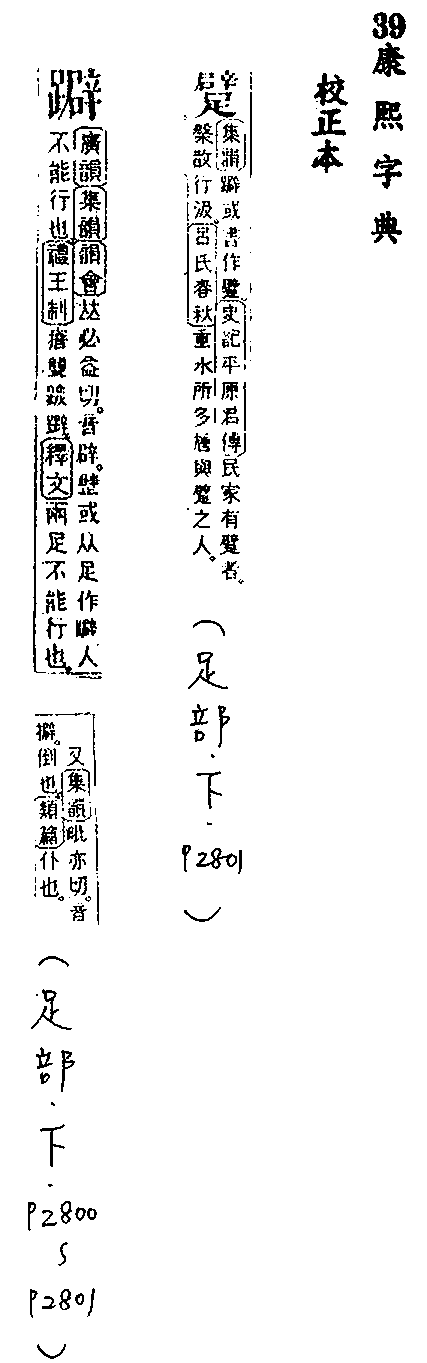 39康熙字典
校正本
躄
集韻躃或書作躄史記平原君傳民家有躄者。
槃散行汲呂氏春秋重水所多尰與躄之人。
（足部·下·P2801）
躃
廣韻集韻韻會𠀤必益切。音辟。或从足作躃人
不能行也禮王制瘖聾跛躃釋文兩足不能行也。
又集韻毗亦切。音
擗。倒也類篇仆也。
（足部·下·P2800
∫
P2801）